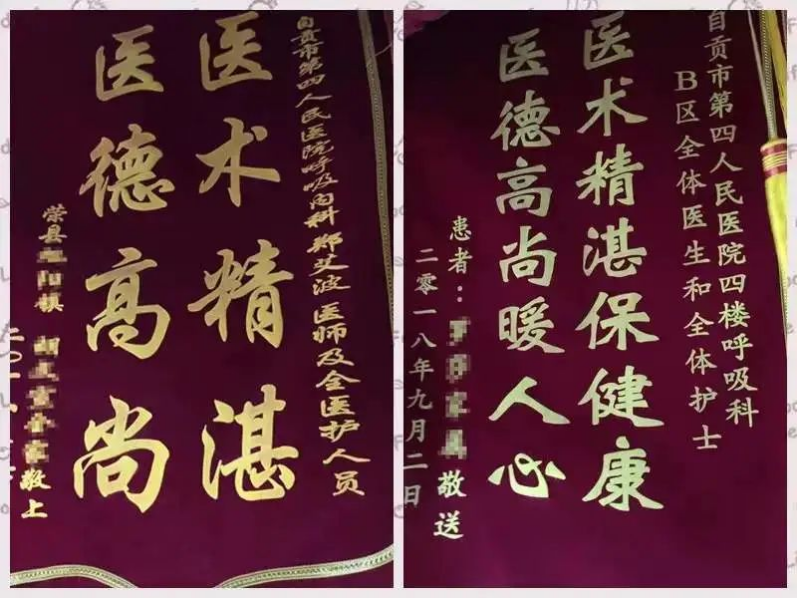 自贡市第四人民医院呼吸内科郑艾波医师及全医护人员
医术精湛
医德高尚
荣县 阳镇
敬上
自贡市第四人民医院四楼呼吸科
B区全体医生和全体护士
医术精湛保健康
医德高尚暖人心
患者： 敬送
二零一八年九月二日